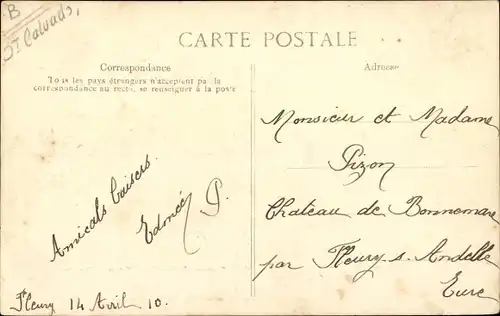 B
Dt Calvados,
CARTE POSTALE
Correspondance
Tous les pays étrangers n'acceptent pas la
correspondance au recto, se renseigner à la poste
Adresse
Monsieur et Madame
Pizon
Chateau de Bonnemare
par Fleury s. Andelle
Eure
Amicals baisers.
P.
Fleury 14 Avril 10.